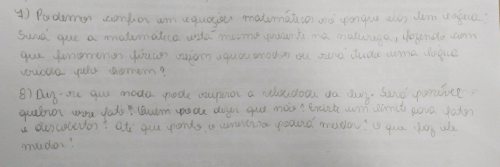 7) Podemos confiar em equações matemáticas só porque elas têm lógica?
Será que a matemática está mesmo presente na natureza, fazendo com
que fenômenos físicos sejam equacionados ou será tudo uma lógica
criada pelo homem?
8) Diz-se que nada pode superar a velocidade da luz. Será possível
quebrar esse fato? Quem pode dizer que não? Existe um limite para fatos
e descobertas? Até que ponto o universo poderá mudar? O que faz ele
mudar?